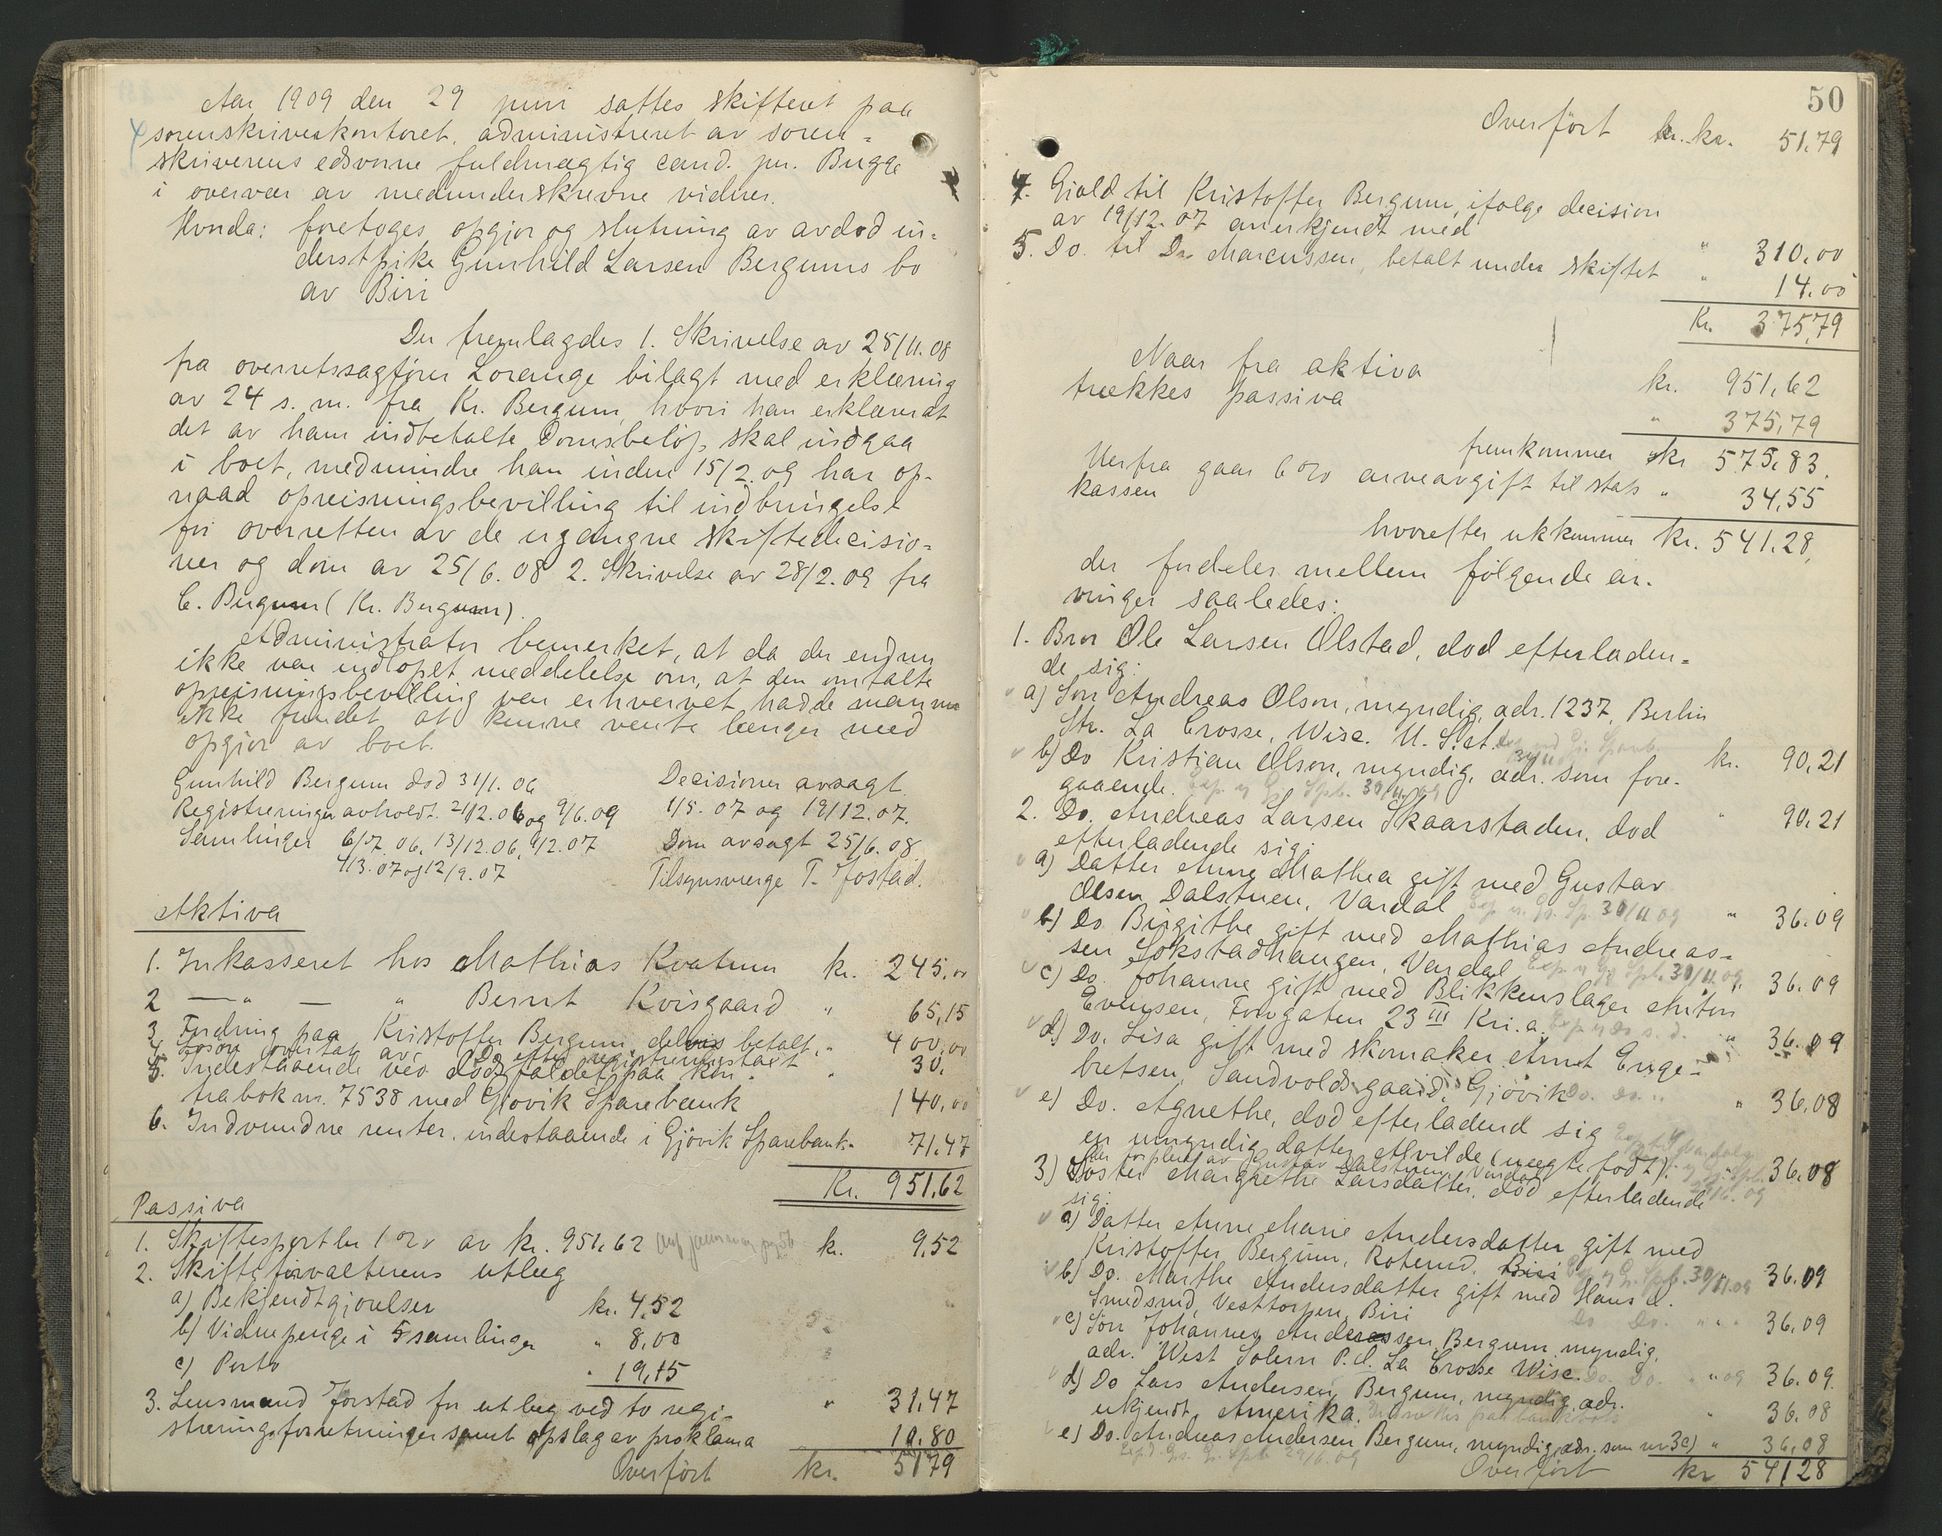 Aar 1909 den 29 juni sattes skifteret paa
sorenskriverkontoret, administreret av soren-
skriverens edsvorne fuldmægtig cand. jur. Bugge
i overvær av medunderskrevne vidner.
Hvorda: foretoges opgjør og slutning av avdød in-
derstpike Gunhild Larsen Bergums bo
av Biri
Der fremlagdes 1. Skrivelse av 25/11.08
fra overretssagfører Lorange bilagt med erklæring
av 24 s. m. fra Kr. Bergum, hvori han erklærer at
det av ham indbetalte Domsbeløp skal indgaa
i boet, medmindre han inden 15/2.09 har op-
naad opreisningsbevilling til indbringelse
for overretten av de ergangne skiftedecisio-
ner og dom av 25/6.08 2. Skrivelse av 28/2.09 fra
C. Bergum (Kr. Bergum).
Administrator bemerket, at da der endnu
ikke var indløpet meddelelse om, at den omtalte
opreisningsbevilling var erhvervet, hadde man
ikke fundet at kunne vente længer med
opgjør av boet.
Gunhild Bergum død 31/1.06
Registreringer avholdt 2/12.06 og 9/6.09
Samlinger 6/7.06, 13/12.06, 9/2.07
4/3.07 og 12/9.07
Decisioner avsagt
1/5.07 og 19/12.07.
Dom avsagt 25/6.08
Tilsynsværge T. Fostad.
Aktiva
1. Inkasseret hos Mathias Kvatum kr. 245.00
2 — " — " Bernt Kvisgaard " 65,15
3 Fordring paa Kristoffer Bergum, delvis betalt, " 400,00
4. Løsøre overtat av Do efter registreringstaxt " 30.
5. Indestaaende ved dødsfaldet paa kon-
trabok nr. 7538 med Gjøvik Sparebank 140,00
6. Indvundne renter, indestaaende i Gjøvik Sparebank - 71.47
Kr. 951,62
Passiva
1. Skiftesportler 1 % av kr. 951,62 kr. 9,52
2. Skifteforvalterens utlæg
a) Bekjendtgjørelser kr. 4.52
b) Vidnepenge i 5 samlinger " 8,00
c) Porto " 19,15
" 31,47
3. Lensmand Fostad for utlæg ved to regi-
streringsforretninger samt opslag av proklama 10.80
Overført kr. 5179
50
Overført kr. kr. 51,79
4. Gjæld til Kristoffer Bergum, ifølge decision
av 19/12.07 anerkjendt med " 310,00
5. Do. til Dr. Marcussen, betalt under skiftet " 14.00
Kr. 375,79
Naar fra aktiva kr. 951,62
trækkes passiva " 375,79
fremkommer kr 575,83.
Herfra gaar 6 % arveavgift til stats
kassen " 34,55
hvorefter utkommer kr. 541.28,
der fordeles mellem følgende ar-
vinger saaledes:
1. Bror Ole Larsen Olstad, død efterladen-
de sig:
a) Søn Andreas Olson, myndig, adr. 1237, Berlin
Str. La Crosse, Wisc. U. S. A. kr. 90,21
b) Do Kristian Olson, myndig, adr. som fore-
gaaende. Exp. 30/11.09 " 90,21
2. Do. Andreas Larsen Skaarstaden, død
efterladende sig:
a) Datter Anne Mathea gift med Gustav
Olsen Dalstuen, Vardal Exp. 30/11 09 " 36.09
b) Do. Birgithe gift med Mathias Andreas-
sen Sokstadhaugen, Vardal Exp. 30/11 09. 36.09
c) Do. Johanne gift med Blikkenslager Anton
Evensen, Torvgaten 23 III Kr.a. " 36.09
d) Do. Lisa gift med skomaker Arnt Enge-
bretsen, Sandvoldsgaard, Gjøvik Do. Do. " " 36,08
e) Do. Agnethe, død efterladend sig
en umyndig datter Alvilde (uegte født). 36.08
(er i pleie av Gustav Dalstuen, Vardal)
3) Søster Margrethe Larsdatter, død efterladende
sig:
a) Datter Anne Marie Andersdatter gift med
Kristoffer Bergum, Roterud, Biri 30/11.09 36.09
b) Do. Marthe Andersdatter gift med Hans A.
Smedsrud, Vesttorpen, Biri Do. Do. " " 36,09
c) Søn Johannes Anderssen, Bergum, myndig,
adr. West Salem P.O. La Crosse Wisc. Do. Do. 36.09
d) Do Lars Andersen, Bergum, myndig, adr.
ukjendt, Amerika. " 36.08
e) Do. Andreas Andersen, Bergum, myndig, adr. som nr 3c) " 36,08
Overført kr 54128